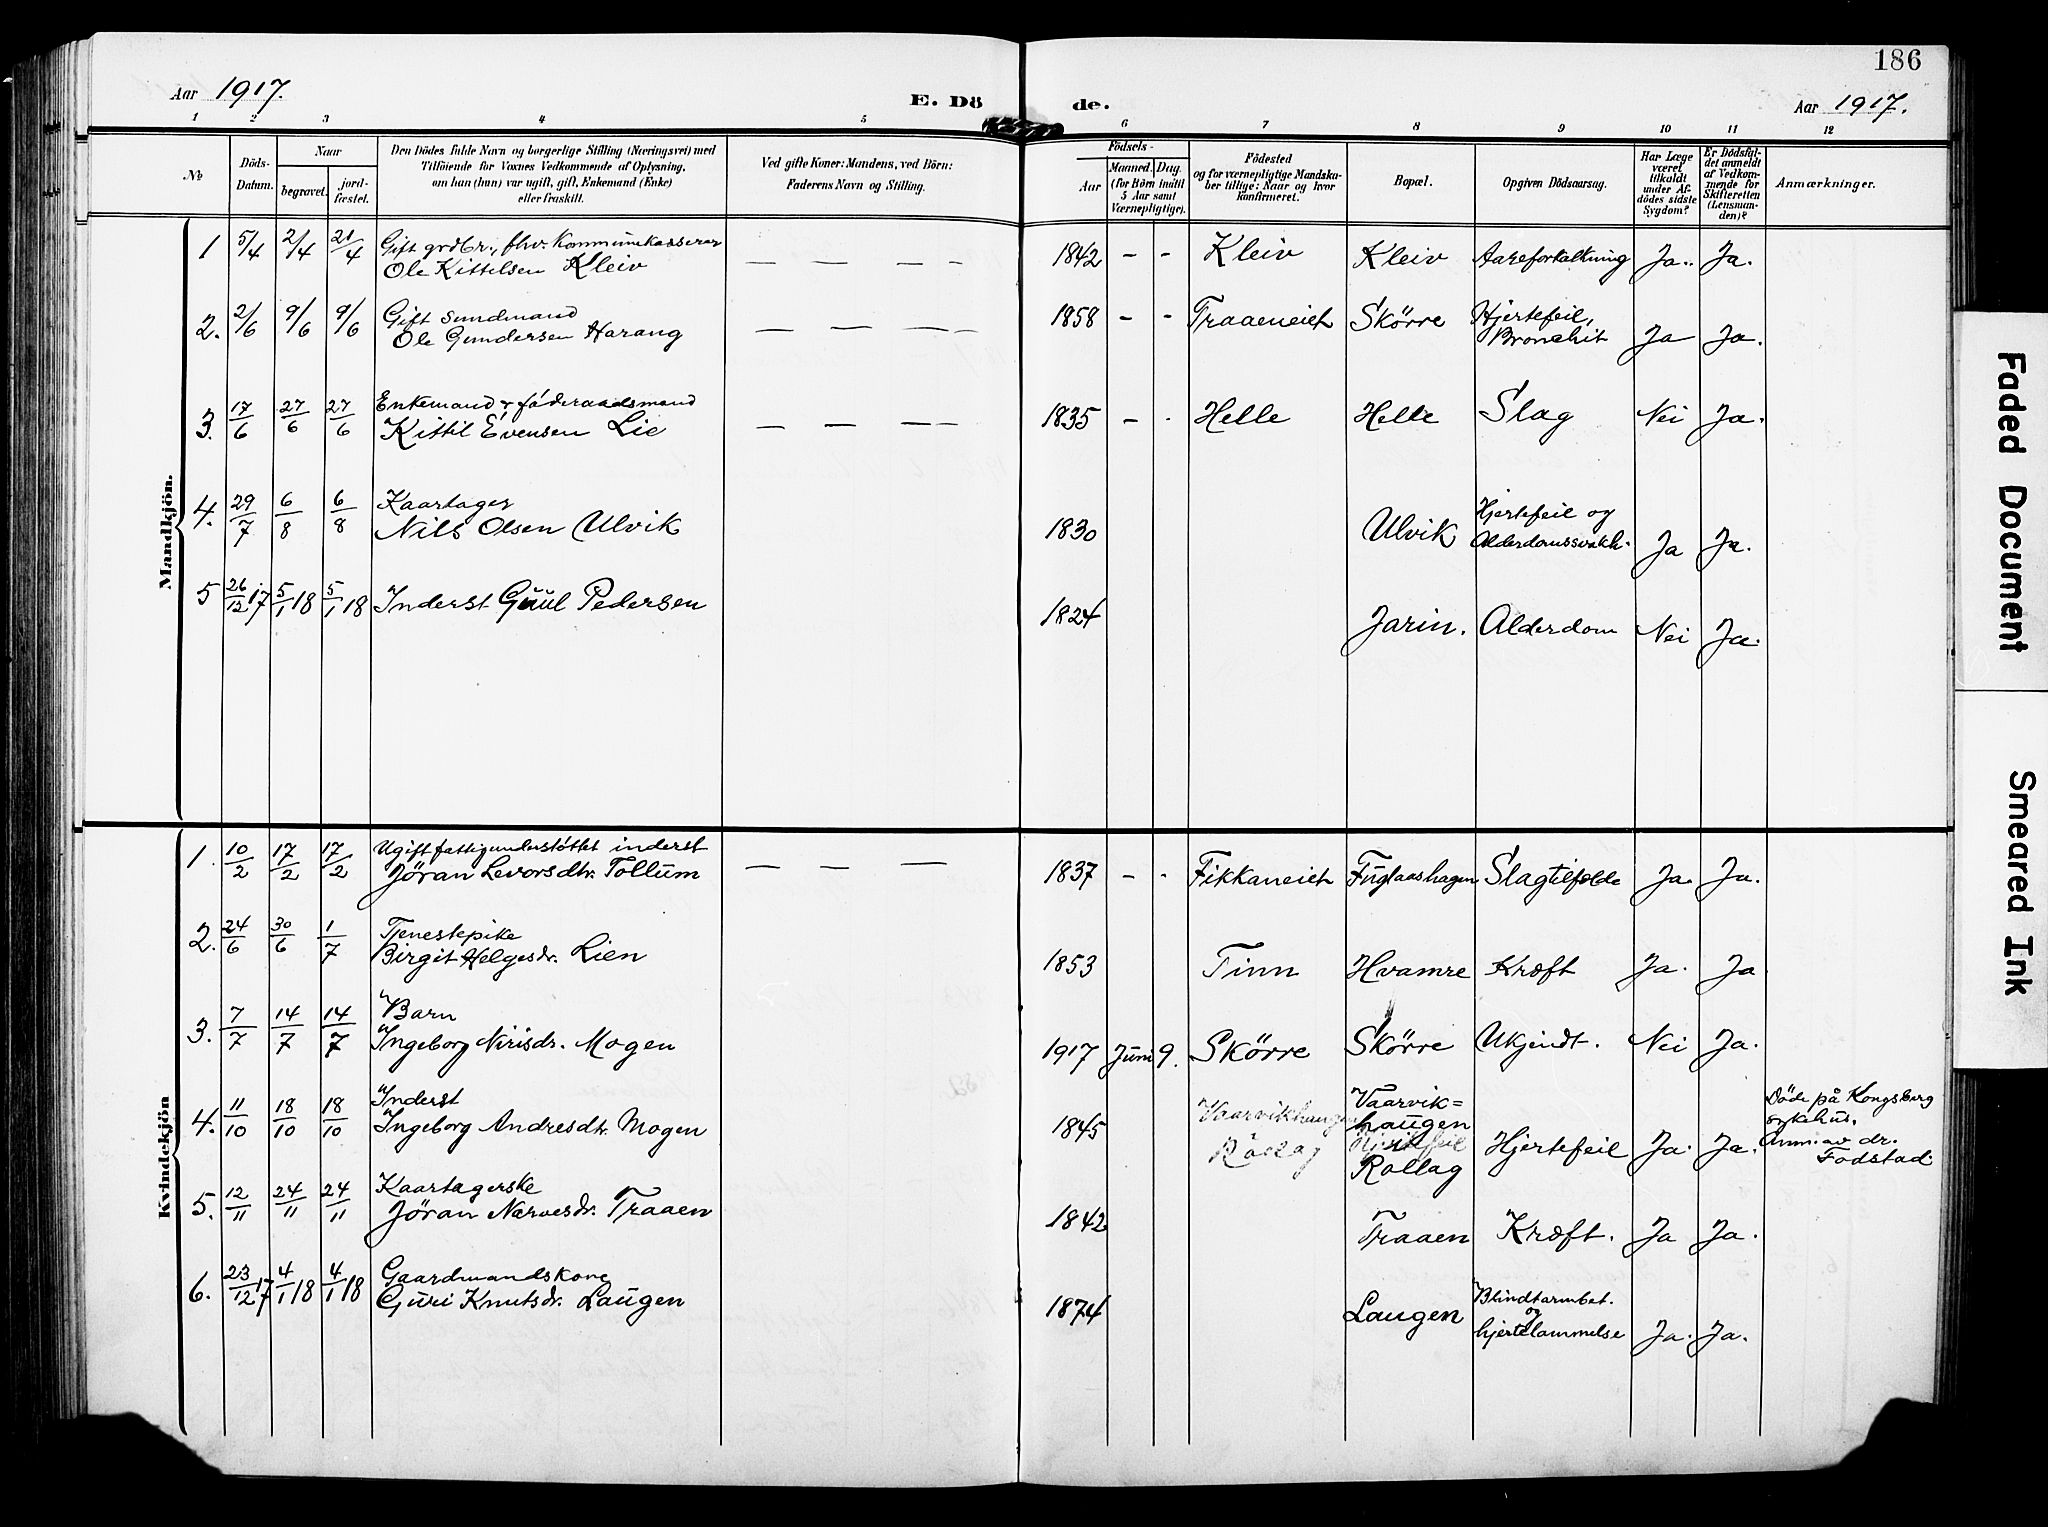 186
Aar 1917.
E. Dö
de.
Aar 1917.
1 2 3 4 5 6 7 8 9 10 11 12
No
Döds-
Datum.
Naar
begravet.
jord-
fæstet.
Den Dödes fulde Navn og borgerlige Stilling (Næringsvei) med
Tilföiende for Voxnes Vedkommende af Oplysning,
om han (hun) var ugift, gift, Enkemand (Enke)
eller fraskilt.
Ved gifte Koner: Mandens, ved Börn:
Faderens Navn og Stilling.
Födsels-
Aar
Maaned. Dag.
(for Börn indtil
5 Aar samt
Værnepligtige).
Födested
og for værnepligtige Mandska-
ber tillige: Naar og hvor
konfirmeret.
Bopæl.
Opgiven Dödsaarsag.
Har Læge
været
tilkaldt
under Af-
dödes sidste
Sygdom?
Er Dödsfal-
det anmeldt
af Vedkom-
mende for
Skifteretten
(Lensman-
den)?
Anmærkninger.
Mandkjön.
1 5/4 2/4 21/4 Gift grdbr., fhv. Kommunekasserer
Ole Kittelsen Kleiv — — — — 1842 - - Kleiv Kleiv Aareforkalkning Ja. Ja.
2. 2/6 9/6 9/6 Gift sundmand
Ole Gundersen Harang — — — — 1858 - - Traaeneiet Skörre Hjertefeil,
Bronchit Ja Ja.
3. 17/6 27/6 27/6 Enkemand & föderaadsmand
Kittil Evensen Lie — — — — 1835 - - Helle Helle Slag Nei Ja.
4. 29/7 6/8 6/8 Kaartager
Nils Olsen Ulvik 1830 Ulvik Hjertefeil og
Alderdomssvakh. Ja Ja.
5 26/12 17 5/1 18 5/1 18 Inderst Guul Pedersen 1824 Jarin. Alderdom Nei Ja.
Kvindekjön
1. 10/2 17/2 17/2 Ugift fattigunderstöttet inderst
Jöran Levorsdtr. Tollum — — — 1837 - - Fikkaneiet Fuglaashagen Slagtilfælde Ja. Ja.
2. 24/6 30/6 1/7 Tjenestepike
Birgit Helgesdr. Lien 1853 Tinn Hvamre Kræft Ja. Ja
3. 7/7 14/7 14/7 Barn
Ingeborg Nirisdr. Mogen 1917 Juni 9. Skörre Skörre Ukjendt. Nei Ja.
4. 11/10 18/10 18/10 Inderst
Ingeborg Andresdtr. Mogen 1845 Vaarvikhaugen
Rollag
Vaarvik=
haugen
Hjertefeil
Rollag
Hjertefeil Ja. Ja.
Döde på Kongsberg
sykehus.
Anm. av dr.
Fodstad.
5. 12/11 24/11 24/11 Kaartagerske
Jöran Narvesdr. Traaen 1842 Traaen Kræft. Ja Ja.
6. 23/12 17 4/1 18 4/1 18 Gaardmandskone
Guri Knutsdr. Laugen 1874 Laugen Blindtarmbet.
og
hjertelammelse Ja. Ja.
Faded Document
Smeared Ink